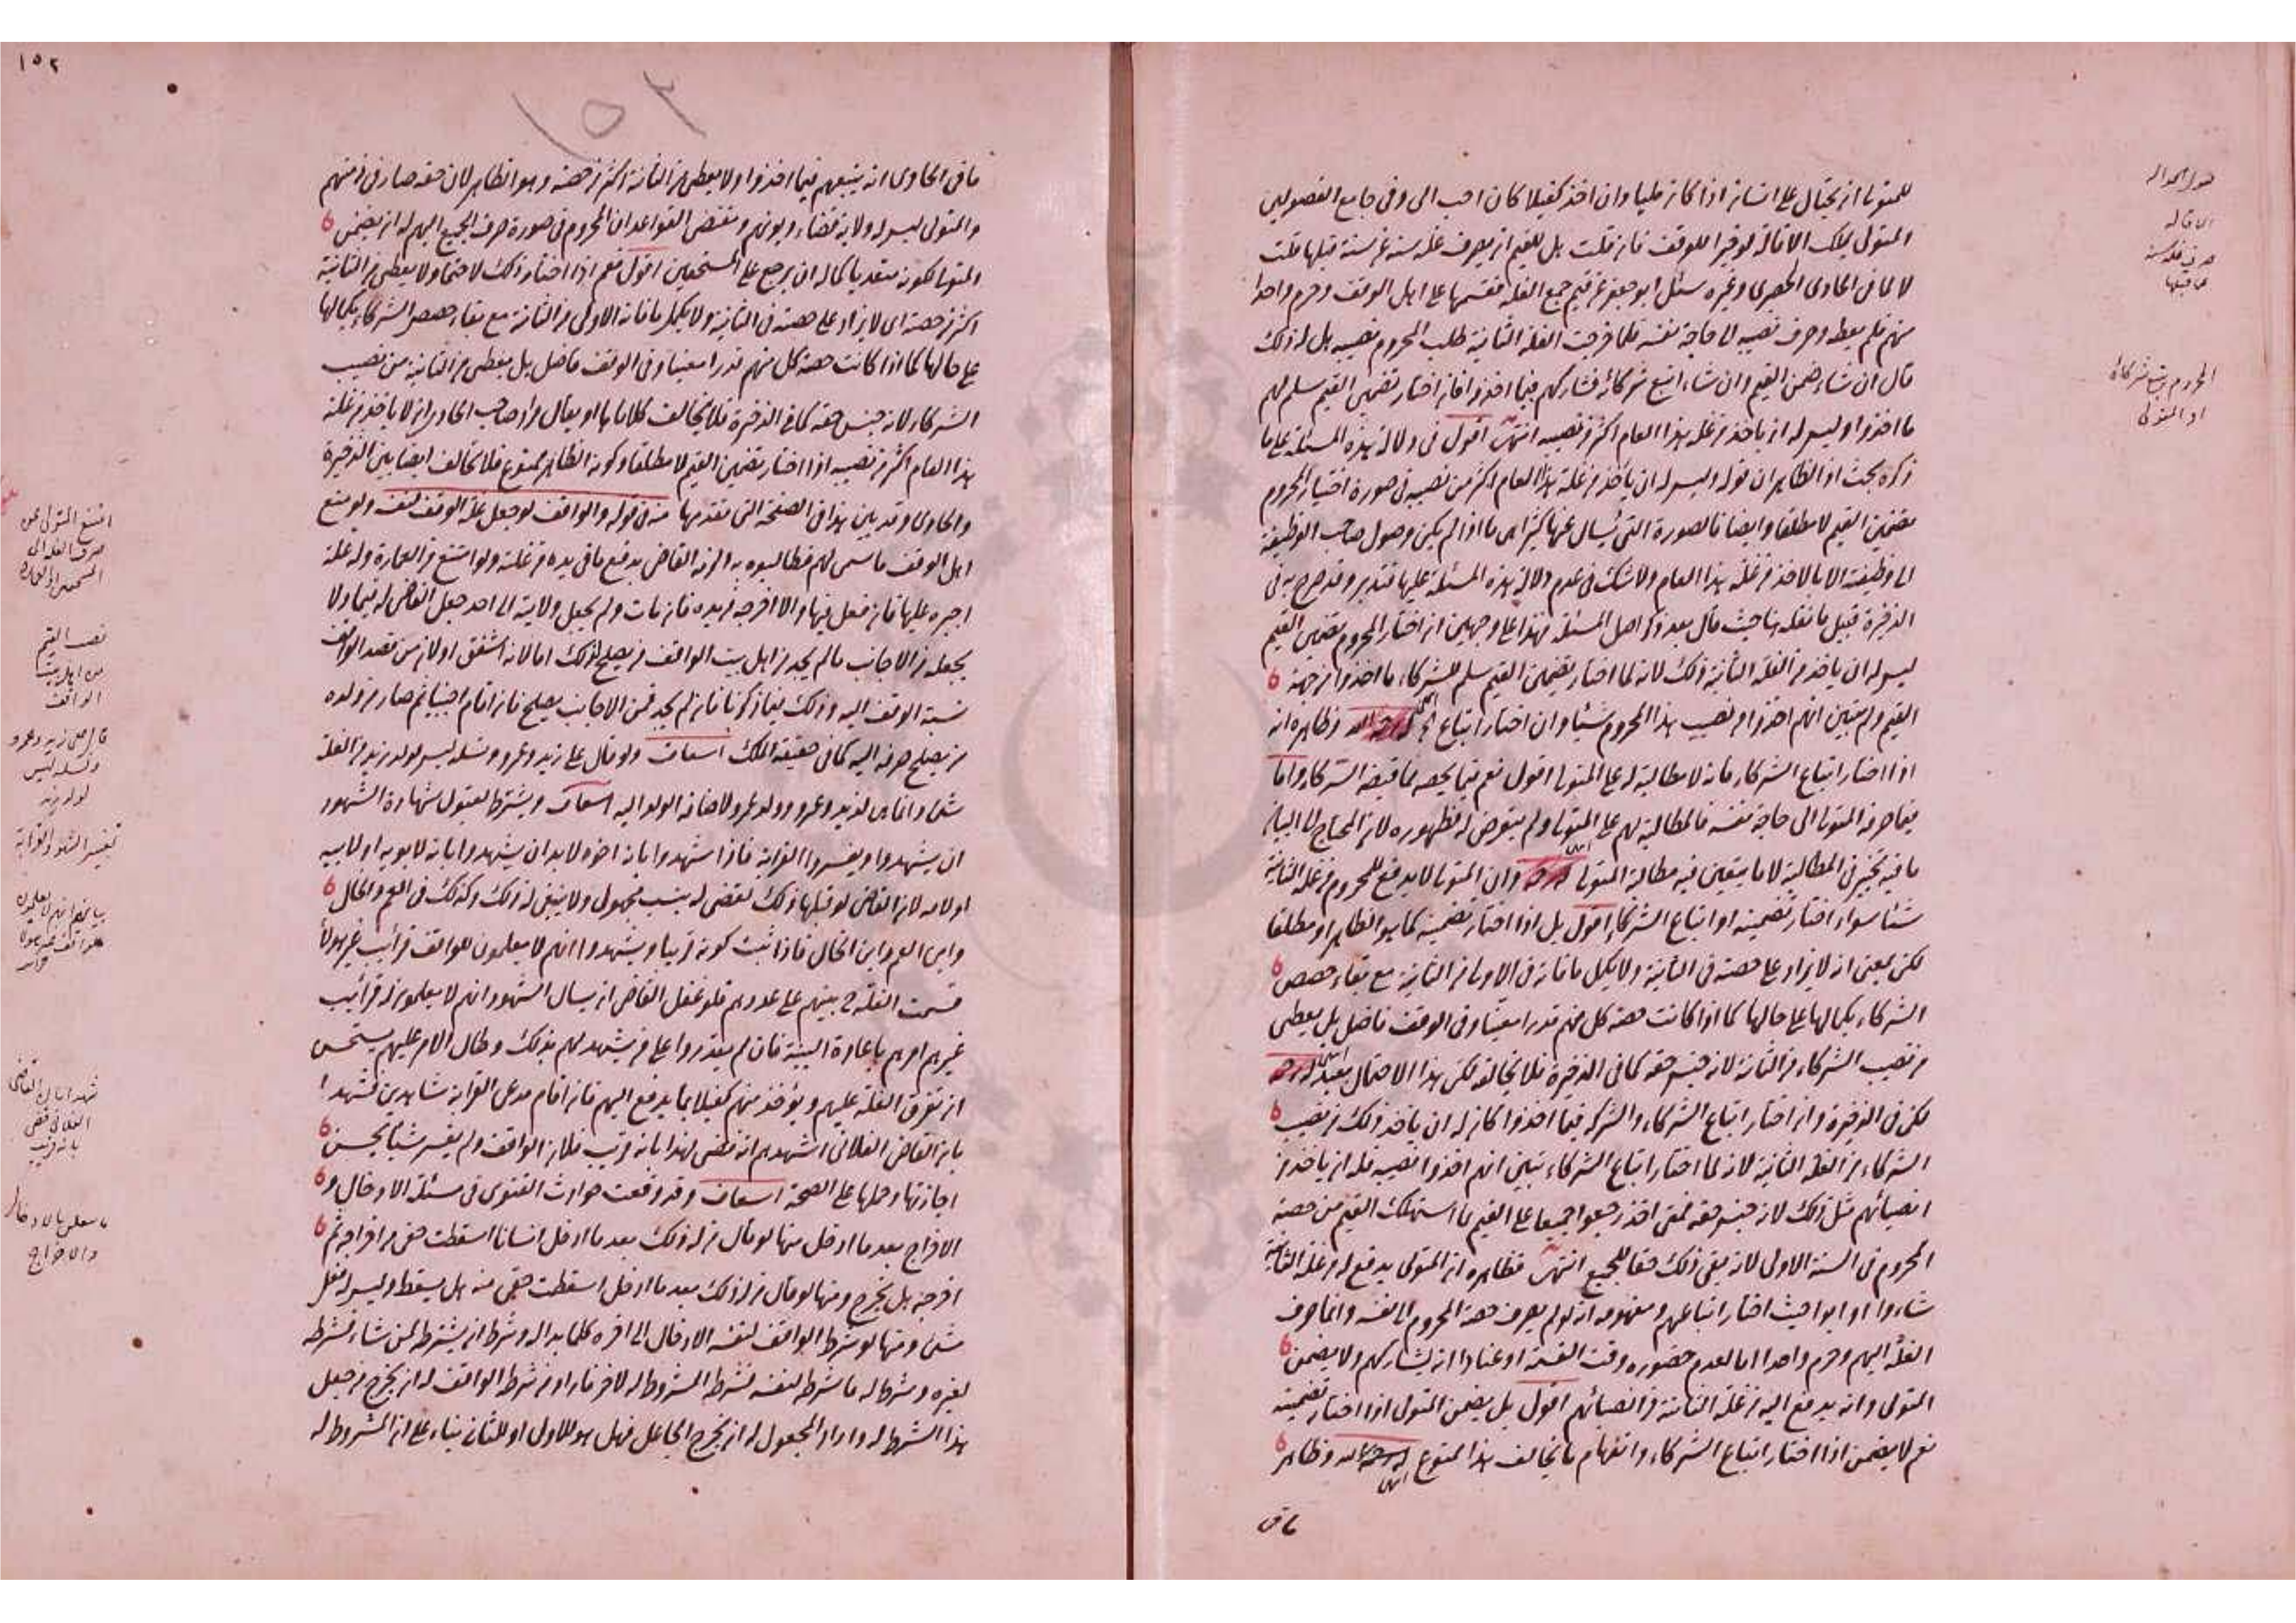 للمتولي ان يحتال على انسان اذا كان مليا وان اخذ كفيلا كان احب الي وفي جامع الفصولين
المتولي يملك الاقالة لو خيرا للوقف فان قلت بل للقيم ان يصرف غلة سنة عن سنة قبلها قلت
لا لما في الحاوي الحصيري وغيره سئل ابو جعفر عن قيم جمع الغلة فقسمها على اهل الوقف وحرم واحدا
منهم فلم يعطه وصرف نصيبه الى حاجة نفسه فلما خرجت الغلة الثانية طلب المحروم نصيبه هل له ذلك
قال ان شاء ضمن القيم وان شاء اتبع شركائه فشاركهم فيما اخذوا فان اختار تضمين القيم سلم لهم
ما اخذوا وليس له ان ياخذ من غلة هذا العام اكثر من نصيبه انتهى اقول في دلالة هذه المسئلة على ما
ذكره بحث اذ الظاهر ان قوله وليس له ان ياخذ من غلة هذا العام اكثر من نصيبه في صورة اختيار المحروم
تضمين القيم لا مطلقا وايضا فالصورة التي يسال عنها كثيرا هي ما اذا لم يكن وصول صاحب الوظيفة
الى وظيفته الا بالاخذ من غلة هذا العام ولا شك في عدم دلالة هذه المسئلة عليها فتدبر وقد صرح به في
الذخيرة قبيل ما نقله هنا حيث قال بعد ذكر اصل المسئلة فهذا على وجهين ان اختار المحروم تضمين القيم
ليس له ان ياخذ من الغلة الثانية ذلك لانه لما اختار تضمين القيم سلم للشركاء ما اخذوا من جهة
القيم ولم يتبين انهم اخذوا من نصيب هذا المحروم شيئا وان اختار اتباع وظاهره انه
اذا اختار اتباع الشركاء فانه لا مطالبة له على المتولي اقول نعم فيما يخصه مما قبضه الشركاء واما
فيما صرفه المتولي الى حاجة نفسه فالمطالبة لهم على المتولي ولم يتعرض له لظهوره لان المحتاج الى البيان
ما فيه تخيير في المطالبة لا ما يتعين فيه مطالبة المتولي وان المتولي لا يدفع للمحروم من غلة الثانية
شيئا سواء اختار تضمينه او اتباع الشركاء اقول بل اذا اختار تضمينه كما هو الظاهر او مطلقا
لكن بمعنى انه لا يزاد على حصته في الثانية ولا يكمل ما فاته في الاولى من الثانية مع بقاء حصص
الشركاء بكمالها على حالها كما اذا كانت حصة كل منهم قدرا معينا وفي الوقف فاضل بل يعطى
من نصيب الشركاء من الثانية لانه جنس حقه كما في الذخيرة فلا يخالفه لكن هذا الاحتمال بعيد
لكن في الذخيرة وان اختار اتباع الشركاء والشركة فيما اخذوا كان له ان ياخذ ذلك من نصيب
الشركاء من الغلة الثانية لانه لما اختار اتباع الشركاء تبين انهم اخذوا نصيبه فله ان ياخذ من
انصبائهم مثل ذلك لانه جنس حقه فمتى اخذ رجعوا جميعا على القيم بما استهلك القيم من حصة
المحروم في السنة الاولى لانه بقي ذلك حقا للجميع انتهى فظاهره ان المتولي يدفع له من غلة الثانية
شاءوا او ابوا حيث اختار اتباعهم ومفهومه انه لو لم يصرف حصة المحروم الى نفسه وانما صرف
الغلة اليهم وحرم واحدا اما لعدم حضوره وقت القسمة او عنادا انه يشاركهم ولا يضمن
المتولي وانه يدفع اليه من غلة الثانية من انصبائهم اقول بل يضمن المتولي اذا اختار تضمينه
نعم لا يضمن اذا اختار اتباع الشركاء وانفهام ما يخالف هذا ممنوع وظاهر
ما في
قبول الحوالة
الاقالة
صرف غلة سنة
عما قبلها
المحروم يتبع شركائه
او المتولي
١٥٢
١٥٢
ما في الحاوي انه يتبعهم فيما اخذوا ولا يعطى من الثانية اكثر من حصته وهو الظاهر لان حقه صار في ذمتهم
والمتولي ليس له ولاية قضاء ديونهم ومقتضى القواعد ان المحروم في صورة صرف الجميع اليهم له ان يضمن
المتولي لكونه متعديا كما له ان يرجع على المستحقين اقول نعم اذا اختار ذلك لا حتما ولا يعطى من الثانية
اكثر من حصته اي لا يزاد على حصته في الثانية ولا يكمل ما فاته الاولى من الثانية مع بقاء حصص الشركاء بكمالها
على حالها كما اذا كانت حصة كل منهم قدرا معينا وفي الوقف فاضل بل يعطى من الثانية من نصيب
الشركاء لانه جنس حقه كما في الذخيرة فلا يخالف كلاهما او يقال مراد صاحب الحاوي انه لا ياخذ من غلة
هذا العام اكثر من نصيبه اذا اختار تضمين القيم لا مطلقا وكونه الظاهر ممنوع فلا تخالف ايضا بين الذخيرة
والحاوي وقد بين هذا في الصفحة التي تقدمها منه في قوله والواقف لو جعل غلة الوقف لنفسه ولو منع
اهل الوقف ما سمى لهم فطالبوه به الزمه القاضي بدفع ما في يده من غلته ولو امتنع من العمارة وله غلة
اجبره عليها فان فعل فبها والا اخرجه من يده فان مات ولم يجعل ولايته الى احد جعل القاضي له قيما ولا
يجعله من الاجانب ما لم يجد من اهل بيت الواقف من يصلح لذلك اما لانه اشفق او لان من قصد الواقف
نسبة الوقف اليه وذلك فيما ذكرنا فان لم يجد فمن الاجانب يصلح فان اقام اجنبيا ثم صار من ولده
من يصلح صرفه اليه كما في حقيقة الملك اسعاف ولو قال على زيد وعمرو ونسله ليس لولد زيد من الغلة
شئ وانما هي لزيد وعمرو وولد عمرو لاضافة الولد اليه اسعاف ويشترط لقبول شهادة الشهود
ان يشهدوا ويفسروا القرابة فاذا شهدوا بانه اخوه لا بد ان يشهدوا بانه لابويه او لابيه
او لامه لان القاضي لو قبلها ذلك لقضى له بنسب مجهول ولا سبيل له ذلك وكذلك في العم والخال
وابن العم وابن الخال فاذا ثبت كونه قريبا ويشهدوا انهم لا يعلمون للواقف قرائب غير هولاء
قسمت الغلة ح بينهم على عددهم فلو غفل القاضي ان يسال الشهود انهم لا يعلمون له قرائب
غيرهم امرهم باعادة البينة فان لم يقدروا على من يشهد لهم بذلك وطال الامر عليهم يستحسن
ان تفرق الغلة عليهم ويؤخذ منهم كفيلا بما يدفع اليهم فان اقام مدعي القرابة شاهدين فشهدا
بان القاضي الفلاني اشهدهم انه قضى لهذا بانه قريب فلان الواقف ولم يفسر شيئا يحسن
اجازتها وحملها على الصحة اسعاف وقد وقعت حوادث الفتوى في مسئلة الادخال و
الاخراج بعد ما ادخل منها لو قال من له ذلك بعد ما ادخل انسانا اسقطت حقي من اخراجه ثم
اخرجه هل يخرج ومنها لو قال من له ذلك بعد ما ادخل اسقطت حقي منه هل يسقط وليس له فعل
شئ ومنها لو شرط الواقف لنفسه الادخال الى اخره كلما بدا له وشرط ان يشترط لمن شاء فشرطه
لغيره وشرط له ما شرط لنفسه فشرط المشروط له لاخر فاراد من شرط الواقف له ان يخرج من جعل
هذا الشرط له واراد المجعول له ان يخرج الجاعل فهل هو للاول او للثاني بناء على ان المشروط له
امتنع المتولي عن
صرف الغلة الى
المستحقين او العمارة
نصب القيم
من اهل بيت
الواقف
قال على زيد وعمرو
ونسله ليس
لولد زيد
تفسير الشهود القرابة
شهدا بان القاضي
الفلاني قضى
بانه قريب
ما يتعلق بالادخال
والاخراج